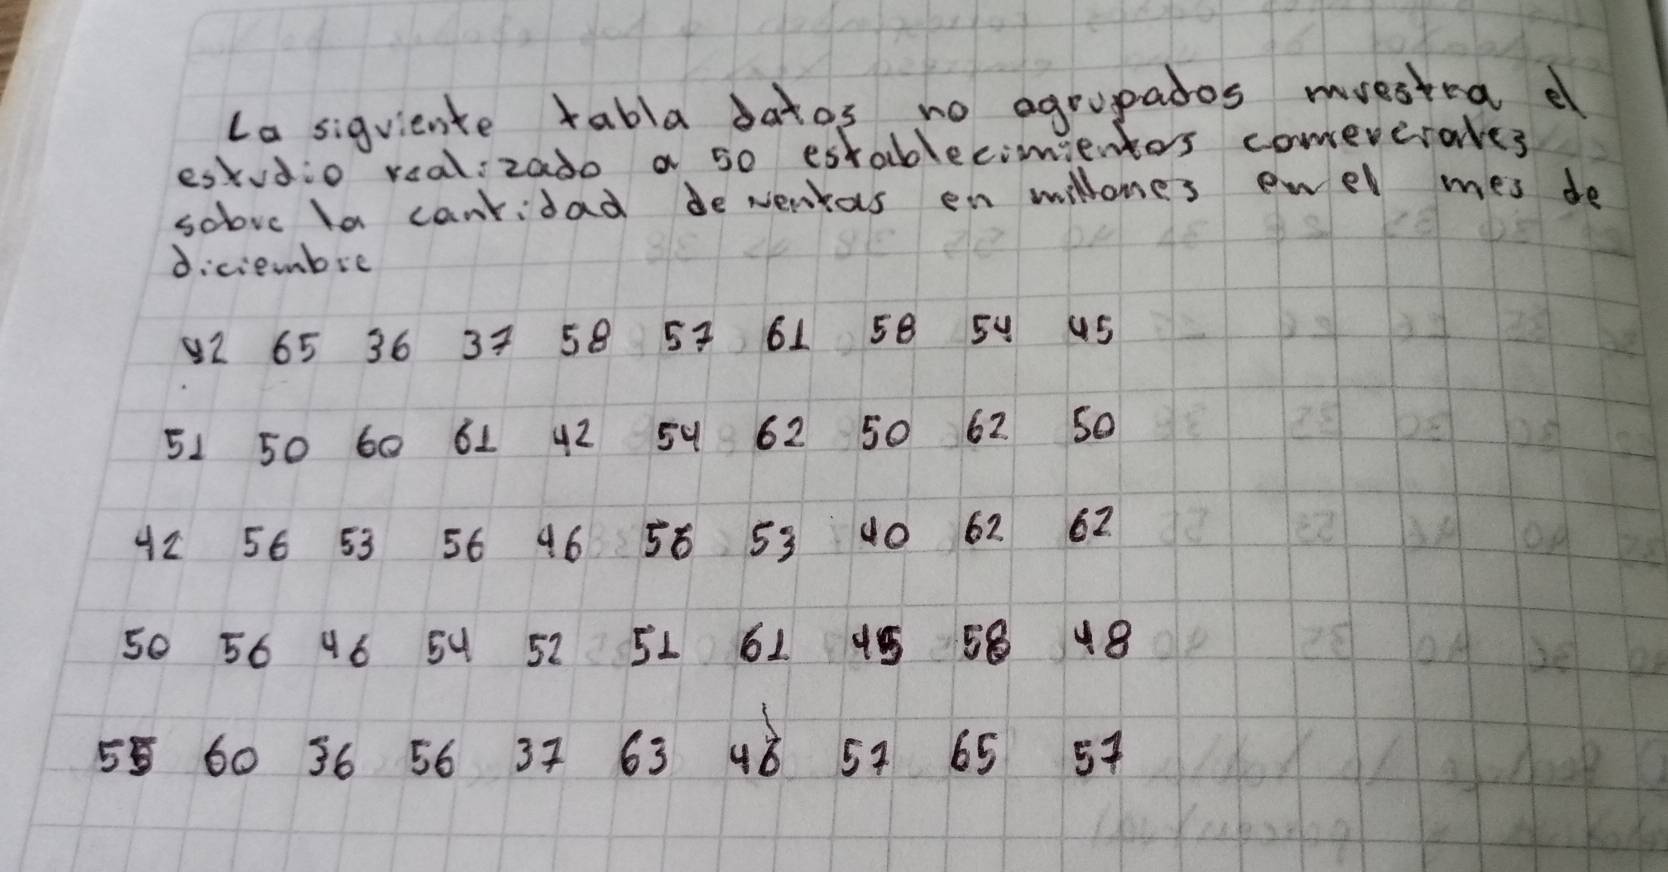 La siguiente tabla datos no agrupados muestra el
estudio realizado a 50 establecimientos comerciales
sobre la cantidad de ventas en millones en el mes de
diciembre
42 65 36 37 58 57 61 58 54 45
51 50 60 61 42 54 62 50 62 50
42 56 53 56 46 56 53 40 62 62
50 56 46 54 52 51 61 45 58 48
55 60 36 56 37 63 46 57 65 57